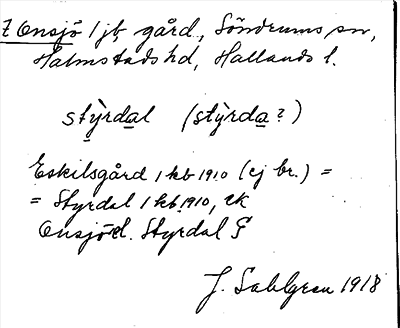 7 Onsjö 1 jb gård, Söndrums sn,
Halmstads hd, Hallands l.
stỳrdal (stỳrda?)
Eskilsgård 1 kb 1910 (ej br.) =
= Styrdal 1 kb 1910, ek
Onsjö el. Styrdal G
J. Sahlgren 1918